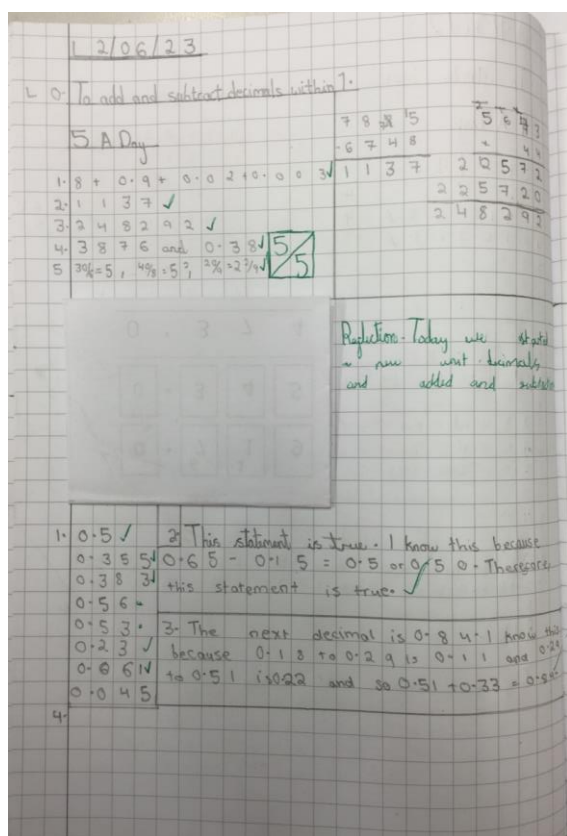 12/06/23
L O- To add and subtract decimals within 1.
5 A Day
1. 8 + 0.9 + 0.02 + 0.003
2. 1137
3. 248292
4. 3876 and 0.38
5 30/6 = 5,
5/5
7 8 8 15
- 6 7 4 8
1 1 3 7
+ 44
2 2 5 7 2 0
2 4 8 2 9 2
Reflection- Today we started
a new unit decimals
and added and
1. 0.5
0.355
0.383
0.56
0.53
0.23
0.661
0.045
2. This statement is true. I know this because
0.65 - 0.15 = 0.5 or 0.50. Therefore,
this statement is true.
3- The next decimal is 0.84. I know this
because 0.18 to 0.29 is 0.11 and 0.29
to 0.51 is 0.22 and so 0.51 + 0.33 = 0.84.
4.